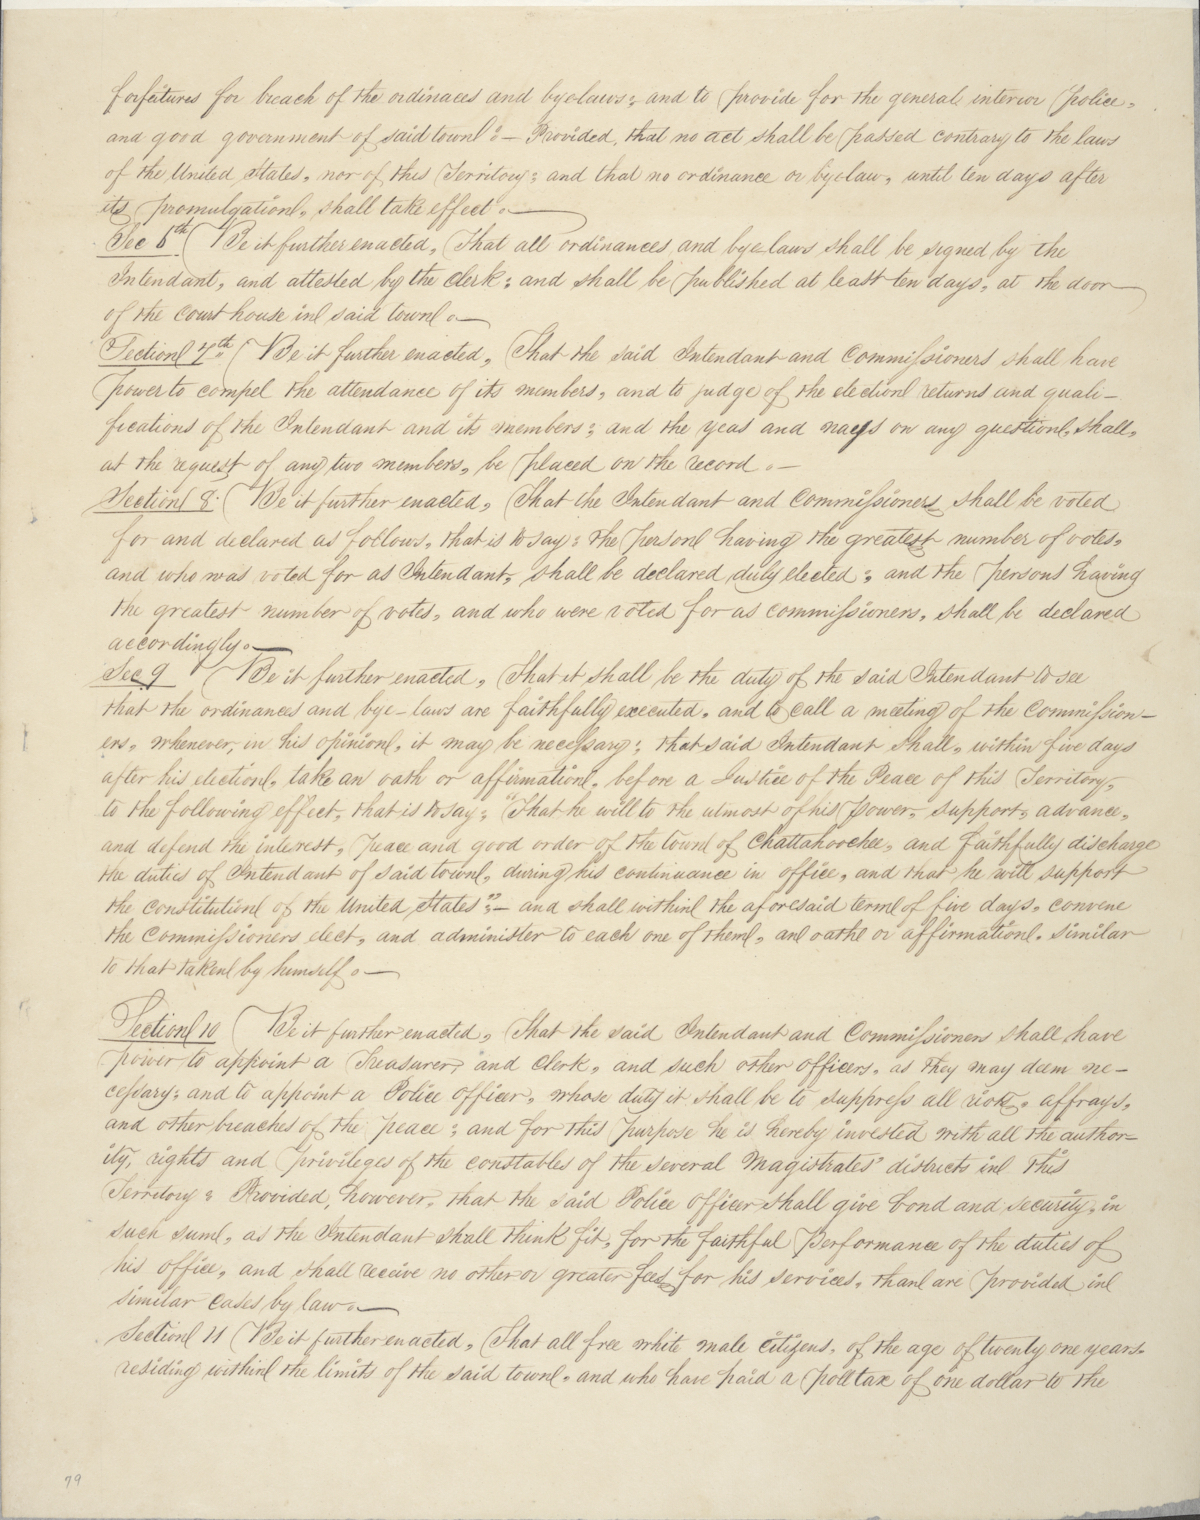 forfeitures for breach of the ordinaces and bye-laws; and to provide for the general interior police,
and good government of said town:— Provided, that no act shall be passed contrary to the laws
of the United States, nor of this Territory; and that no ordinance or bye-law, until ten days after
its promulgation, shall take effect.—
Sec 6th Be it further enacted, That all ordinances and bye-laws shall be signed by the
Intendant, and attested by the clerk; and shall be published at least ten days, at the door
of the court house in said town.—
Section 7th Be it further enacted, That the said Intendant and Commissioners shall have
power to compel the attendance of its members, and to judge of the election returns and quali-
fications of the Intendant and its members; and the yeas and nays on any question, shall,
at the request of any two members, be placed on the record.—
Section 8. Be it further enacted, That the Intendant and Commissioners shall be voted
for and declared as follows, that is to say: the person having the greatest number of votes,
and who was voted for as Intendant, shall be declared duly elected; and the persons having
the greatest number of votes, and who were voted for as commissioners, shall be declared
accordingly.—
Sec 9 Be it further enacted, That it shall be the duty of the said Intendant to see
that the ordinances and bye-laws are faithfully executed, and to call a meeting of the Commission-
ers, whenever, in his opinion, it may be necessary; that said Intendant shall, within five days
after his election, take an oath or affirmation, before a Justice of the Peace of this Territory,
to the following effect, that is to say; "That he will to the utmost of his power, support, advance,
and defend the interest, peace and good order of the town of Chattahoochee, and faithfully discharge
the duties of Intendant of said town, during his continuance in office, and that he will support
the constitution of the United States";— and shall within the aforesaid term of five days, convene
the Commissioners elect, and administer to each one of them, an oath or affirmation, similar
to that taken by himself.—
Section 10 Be it further enacted, That the said Intendant and Commissioners shall have
power to appoint a Treasurer, and Clerk, and such other officers, as they may deem ne-
cessary; and to appoint a Police officer, whose duty it shall be to suppress all riots, affrays,
and other breaches of the peace; and for this purpose he is hereby invested with all the author-
ity, rights and privileges of the constables of the several Magistrates' districts in this
Territory: Provided, however, that the said Police officer shall give bond and security, in
such sum, as the Intendant shall think fit, for the faithful Performance of the duties of
his office, and shall receive no other or greater fees for his services, than are provided in
similar cases by law.—
Section 11 Be it further enacted, That all free white male citizens, of the age of twenty one years
residing within the limits of the said town, and who have paid a poll tax of one dollar to the
79